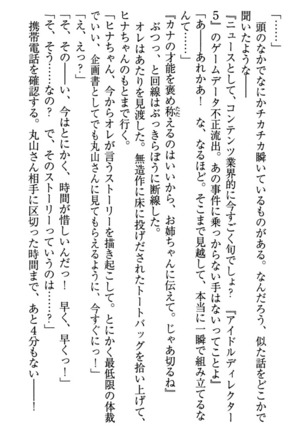 「……」
　頭のなかでなにかチカチカ瞬いているものがある。なんだろう、似た話をどこかで
聞いたような──
『ニュースとして、コンテンツ業界的に今すごく旬でしょ？　『アイドルディレクター
５』のゲームデータ不正流出。あの事件に乗っからない手はないってことよ』
「あ──あれかあ！　な、なるほど。そこまで見越して、本当に一瞬で組み立てるな
んて──」
『カナの才能を褒め称えるのはいいから、お姉ちゃんに伝えて。じゃあ切るね』
　ぶつっ、と回線はぶっきらぼうに断線した。
　オレはあたりを見渡した。無造作に床に投げだされたトートバッグを拾い上げて、
ヒナちゃんのもとまで行く。
「ヒナちゃん、今からオレが言うストーリーを描き起こして。とにかく最低限の体裁
でいい、企画書としてでも丸山さんに見てもらえるように、今すぐにっ！」
「え、えっ？」
「その──い、今はとにかく、時間が惜しいんだっ！　早く、早くっ！」
「そ、そう……なの？　で、そのストーリーっていうのは……？」
　携帯電話を確認する。丸山さん相手に区切った時間まで、あと４分もない──